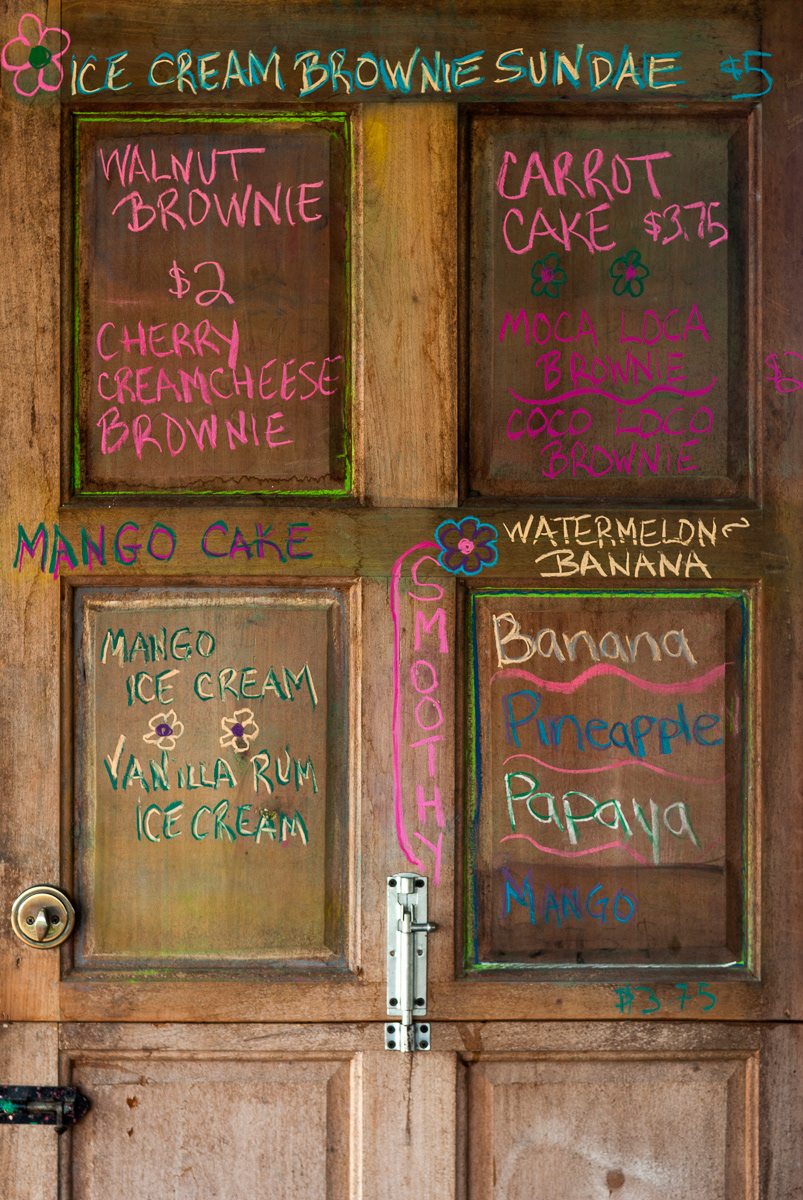 ICE CREAM BROWNIE SUNDAE $5
WALNUT
BROWNIE
$2
CHERRY
CREAMCHEESE
BROWNIE
CARROT
CAKE $3.75
MOCA LOCA
BROWNIE
COCO LOCO
BROWNIE
MANGO CAKE
MANGO
ICE CREAM
VANILLA RUM
ICE CREAM
SMOOTHY
WATERMELON~
BANANA
Banana
Pineapple
Papaya
MANGO
$3.75